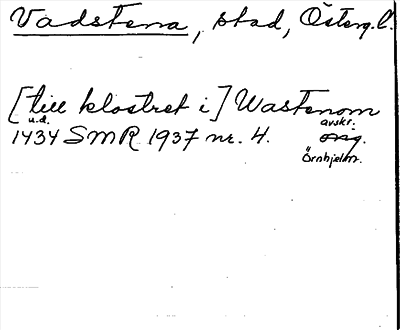 Vadstena, stad, Österg.l.
[till klostret i] Wastenom
u.d. avskr.
1434 SMR 1937 nr. 4. orig.
Örnhjelm.